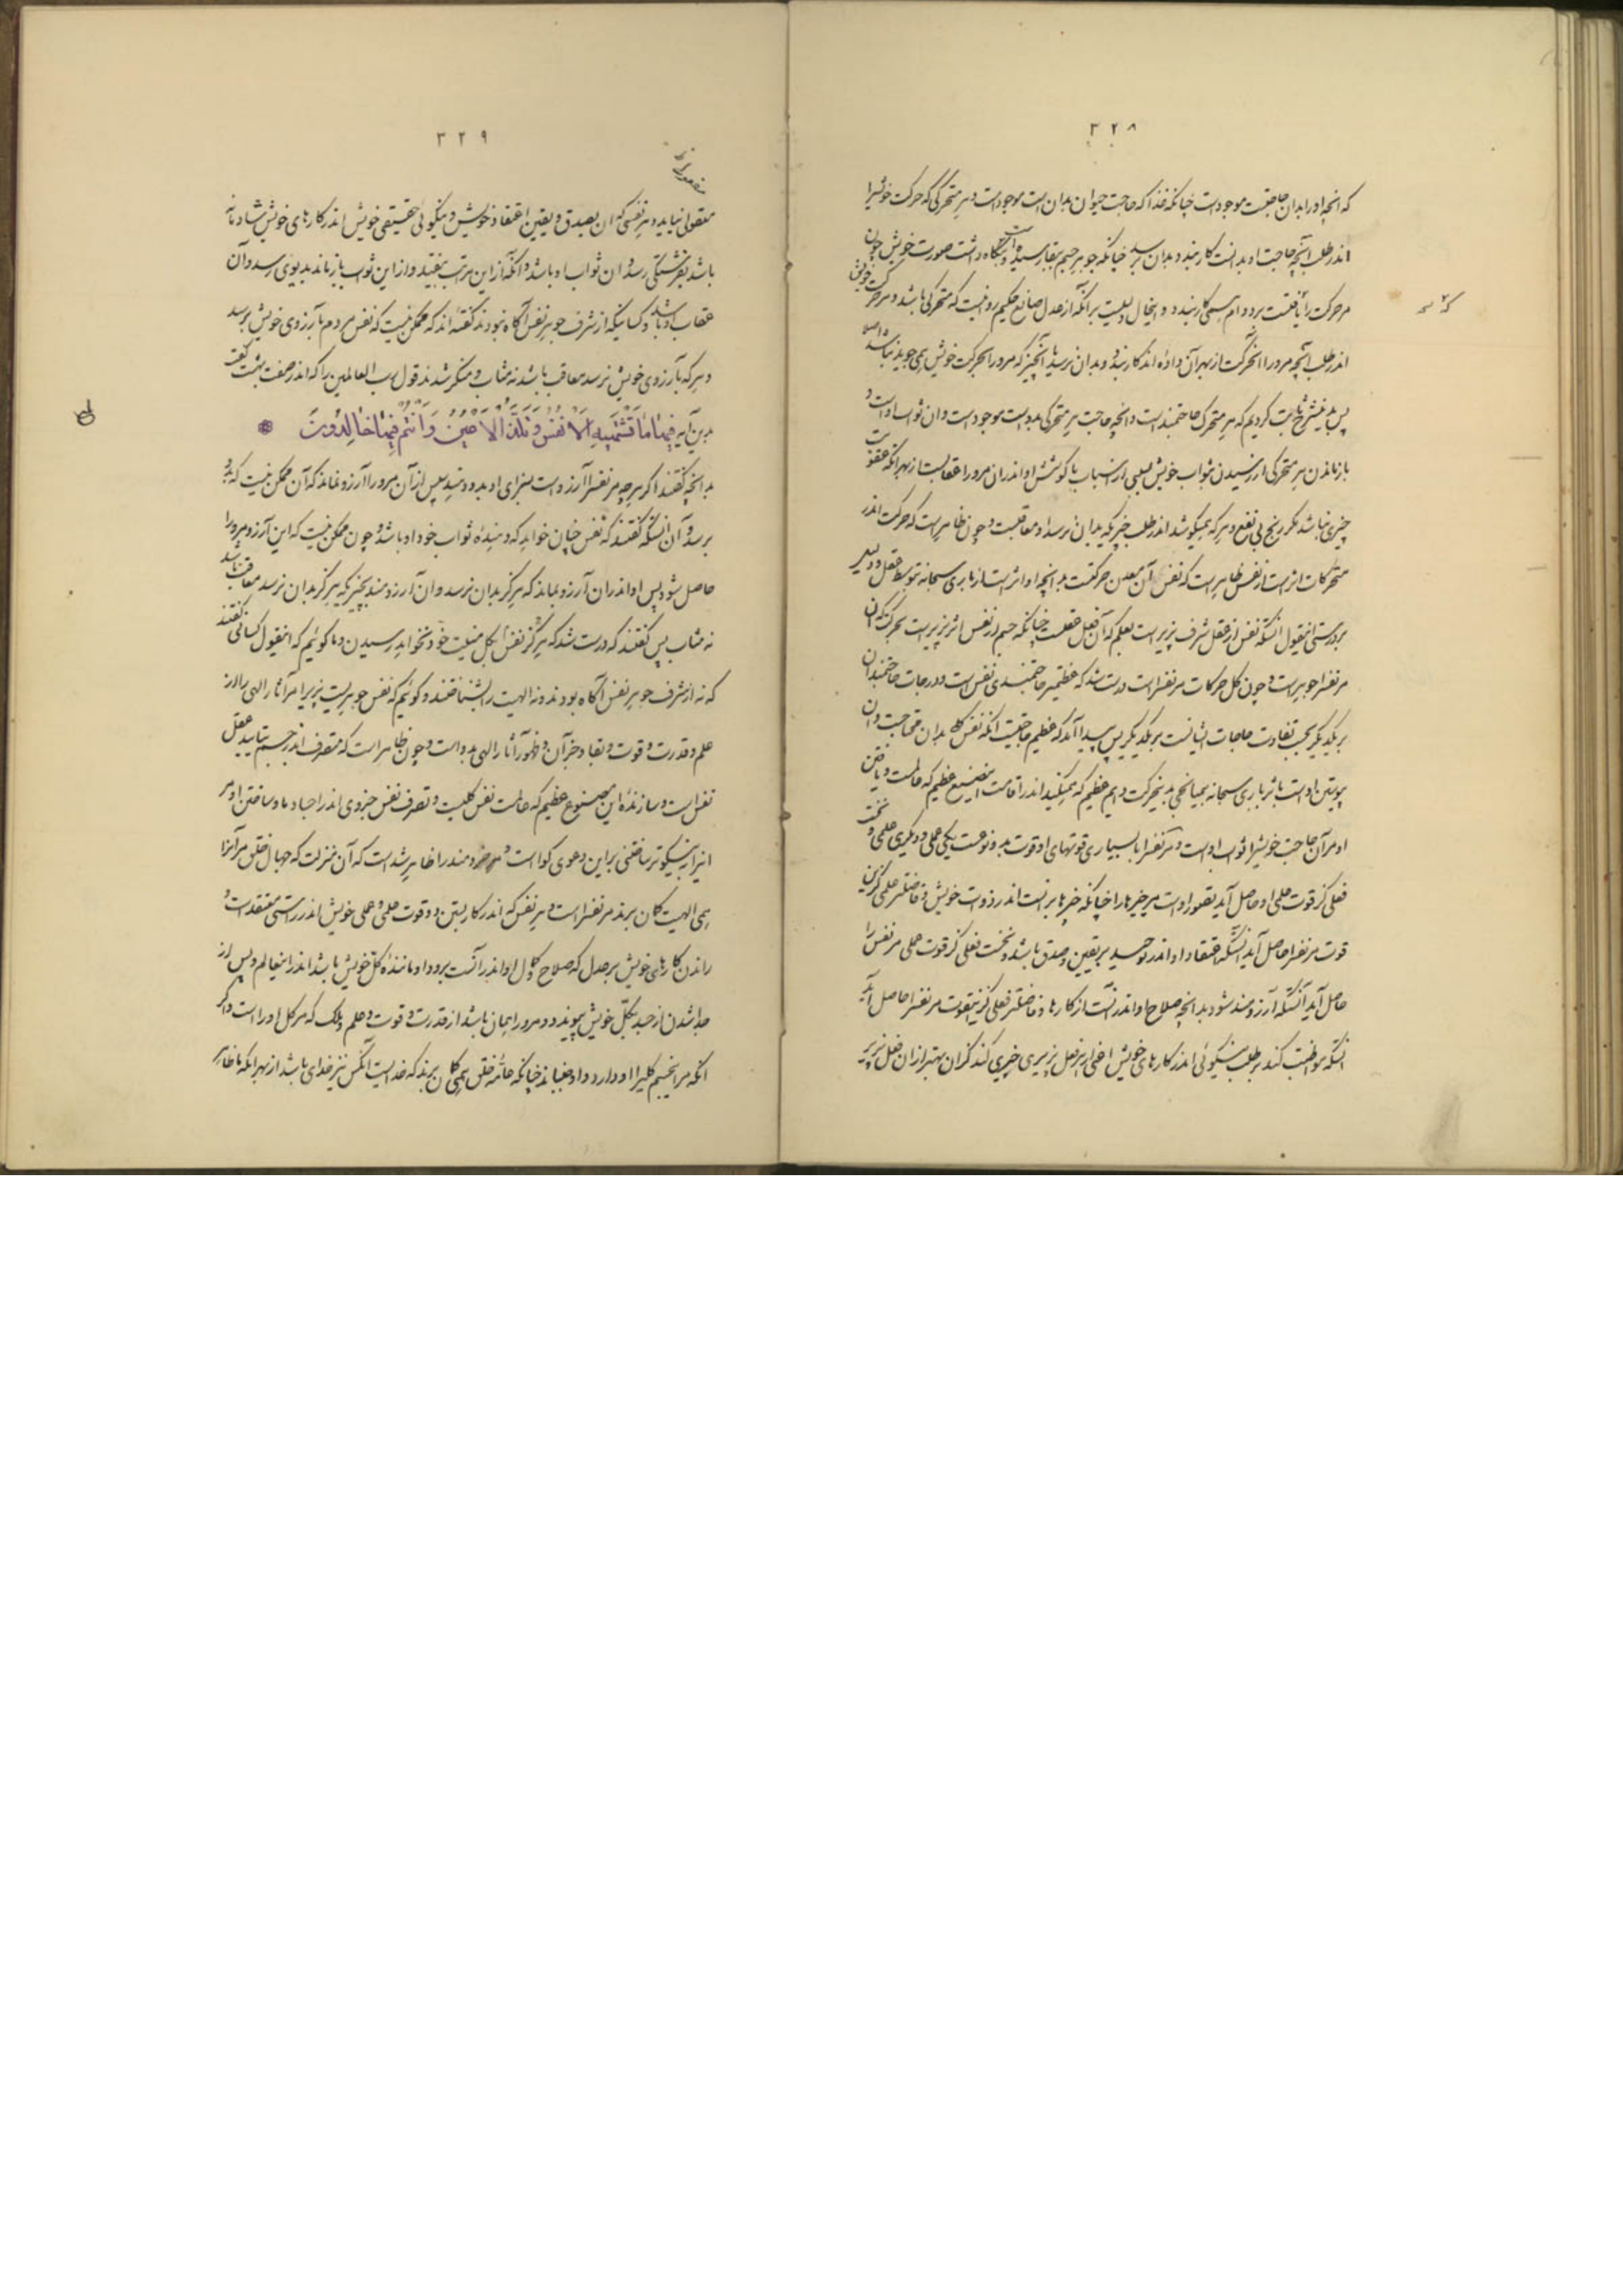 ۳۲۸
که آنچه او را بدان حاجتست موجود است چنانکه غذا که حاجت حیوان بدان است موجود است و هر متحرکی که حرکت خویش را
اندر طلب آنچه حاجت او بدانست کار بندد بدان برسد چنانکه جوهر جسم ببقا رسیده است و نگاه داشت صورت خویش چون
مر حرکت را یافتست بر دوام همی کار بندد و اینحال دلیست بر آنکه از عدل صانع حکیم روا نیست که متحرکی باشد و مر حرکت خویش
اندر طلب آنچه مرورا آنحرکت از بهر آن داده اند کار بندد و بدان نرسد یا آنچیز که مرورا بحرکت خویش همی جوید نباشد اصلا
پس بدینشرح ثابت کردیم که هر متحرک حاجتمند است و آنچه حاجت هر متحرکی بدوست موجود است و آن ثواب اوست و
بازماندن هر متحرکی از رسیدن بثواب خویش بسببی از اسباب با کوشش او اندران مرورا عقابست از بهر آنکه عقوبت
چیزی نباشد مگر رنج بی نفع و هر که همیکوشد اندر طلب چیزیکه بدان نرسد او معاقبست و چون ظاهر است که حرکت اندر
متحرکات اثر است از نفس ظاهر است که نفس آن معین حرکتست بدانچه او اثر است از باری سبحانه بتوسط عقل و دلیل
بر درستی اینقول آنستکه نفس از عقل شرف پذیر است بعلم که آن فعل عقلست چنانکه جسم از نفس اثر پذیر است بحرکت که آن
مر نفس را جوهریست و چون کل حرکات مر نفس راست درست شد که عظیمتر حاجتمندی نفس است و درجات حاجتمندان
بر یکدیگر بحسب تفاوت حاجات ایشانست بر یکدیگر پس پیدا آمد که عظیم حاجتیست آنکه نفس کلی بدان محتاجست و آن
پیوستن اوست باثر باری سبحانه بمیانجی بدینحرکت دایم عظیم که همیکند اندر اقامت اینصنع عظیم که عالمست و یافتن
او مر آن حاجت خویش را ثواب اوست و مر نفس را با بسیاری قوتهای او قوت بدو نوعست یکی عملی و دیگری علمی و نخست
فعلی کز قوت علمی او حاصل آید تصور اوست مر چیزها را چنانکه چیزها بر آنست اندر ذوات خویش و فاضلتر علمی کزین
قوت مر نفس را حاصل آید آنستکه اعتقاد او اندر توحید بر یقین و صدق باشد و نخست فعلی کز قوت عملی مر نفس را
حاصل آید آنستکه آرزومند شود بدانچه صلاح او اندر آنست از کارها و فاضلتر فعلی کزینقوت مر نفس را حاصل آید
آنستکه مواظبت کند بر طلب نیکوئی اندر کارهای خویش اعنی از هر فعل پذیری چیزی کند کزان بهتر از ان فعل پذیر
۳۲۹
معمولی نیاید و هر نفسی که آن بصدق و یقین اعتقاد خویش و نیکوئی حقیقی خویش اندر کارهای خویش شادمانه
باشد بفرشتگی رسد و آن ثواب او باشد و آنکه از این مرتبت بیفتد و از این ثواب باز ماند بدیوی رسد و آن
عقاب او باشد و کسانیکه از شرف جوهر نفس آگاه نبودند گفته اند که ممکن نیست که نفس مردم بآرزوی خویش برسد
و هر که بآرزوی خویش نرسد معاقب باشد نه مثاب و منکر شدند قول رب العالمین را که اندر صفت بهشت گفت
بدین آیه فیها ما تشتهیه الانفس و تلذ الاعین و انتم فیها خالدون *
بدانچه گفتند اگر هر چه مر نفس را آرزو است بسزای او بدو دهند پس از آن مرورا آرزو نماند که آن ممکن نیست که بدو
برسد و آن آنستکه گفتند که نفس چنان خواهد که دهنده ثواب خود او باشد و چون ممکن نیست که این آرزو مرورا
حاصل شود پس او اندران آرزو بماند که هرگز بدان نرسد و آن آرزومند بچیزیکه هرگز بدان نرسد معاقب باشد
نه مثاب پس گفتند که درست شد که هرگز نفس بکل منیت خود نخواهد رسیدن و ما گوئیم که اینقول کسانی گفتند
که نه از شرف جوهر نفس آگاه بودند و نه الهیت را بشناختند و گوئیم که نفس جوهریست پذیرا مر آثار الهی را از
علم و قدرت و قوت و بقا و جز آن و ظهور آثار الهی بدوست و چون ظاهر است که متصرف اندر جسم بتایید عقل
نفس است و سازنده این مصنوع عظیم که عالمست نفس کلیست و تصرف نفس جزوی اندر اجساد ما و ساختن او مر
اینرا به نیکوتر ساختنی بر این دعوی گوا است و مر خردمند را ظاهر شده است که آن منزلت که جهال خلق مر آنرا
همی الهیت گمان برند مر نفس راست و هر نفس که اندر کار بستن دو قوت علمی و عملی خویش اندر راستی معتقدات و
راندن کارهای خویش بر عدل که صلاح و کمال او اندر آنست برود او ماننده کل خویش باشد اندر اینعالم و پس از
جدا شدن از جسد بکل خویش پیوندد و مرورا همان باشد از قدرت و قوت و علم و ملک که مر کل او راست و اگر
آنکه مر اینجسم کلی را او دارد و او جنباند چنانکه عامه خلق همی گمان برند که خدایست آنکس نیز خدای باشد از بهر آنکه ما ظاهر